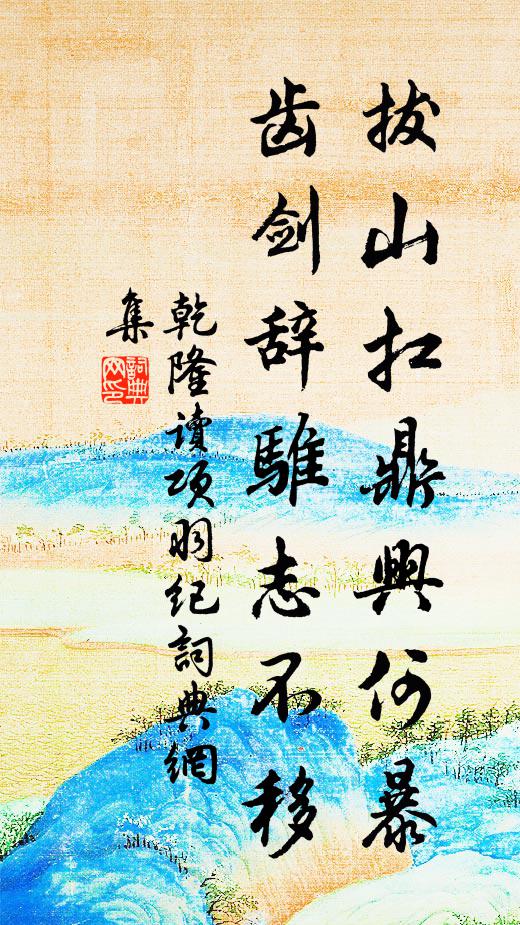 拔山扛鼎興何暴
齿剑辞騅志不移
乾隆读项羽纪詞典網
集
詞典
网印